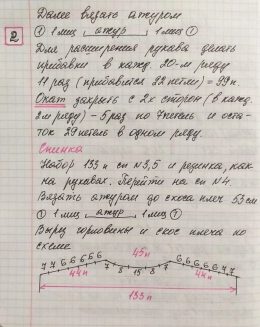 Далее вязать ажуром
2 ① 1 лиц ажур 1 лиц ①
Для расширения рукава делать
прибавки в кажд. 20-м ряду
11 раз (прибавится 22 петли) = 99п.
Окат закрыть с 2х сторон (в кажд.
2м ряду) - 5 раз по 7 петель и оста-
ток 29 петель в одном ряду.
Спинка
Набор 133п сп N3,5 и резинка, как
на рукавах. Перейти на сп N4
Вязать ажуром до скоса плеч 53см
① 1 лиц ажур 1 лиц ①
Вырез горловины и скос плеча по
схеме
45п
7 7 6 6 6 6 6 7 8 15 8 7 6 6 6 6 6 7 7
44п 44п
133п